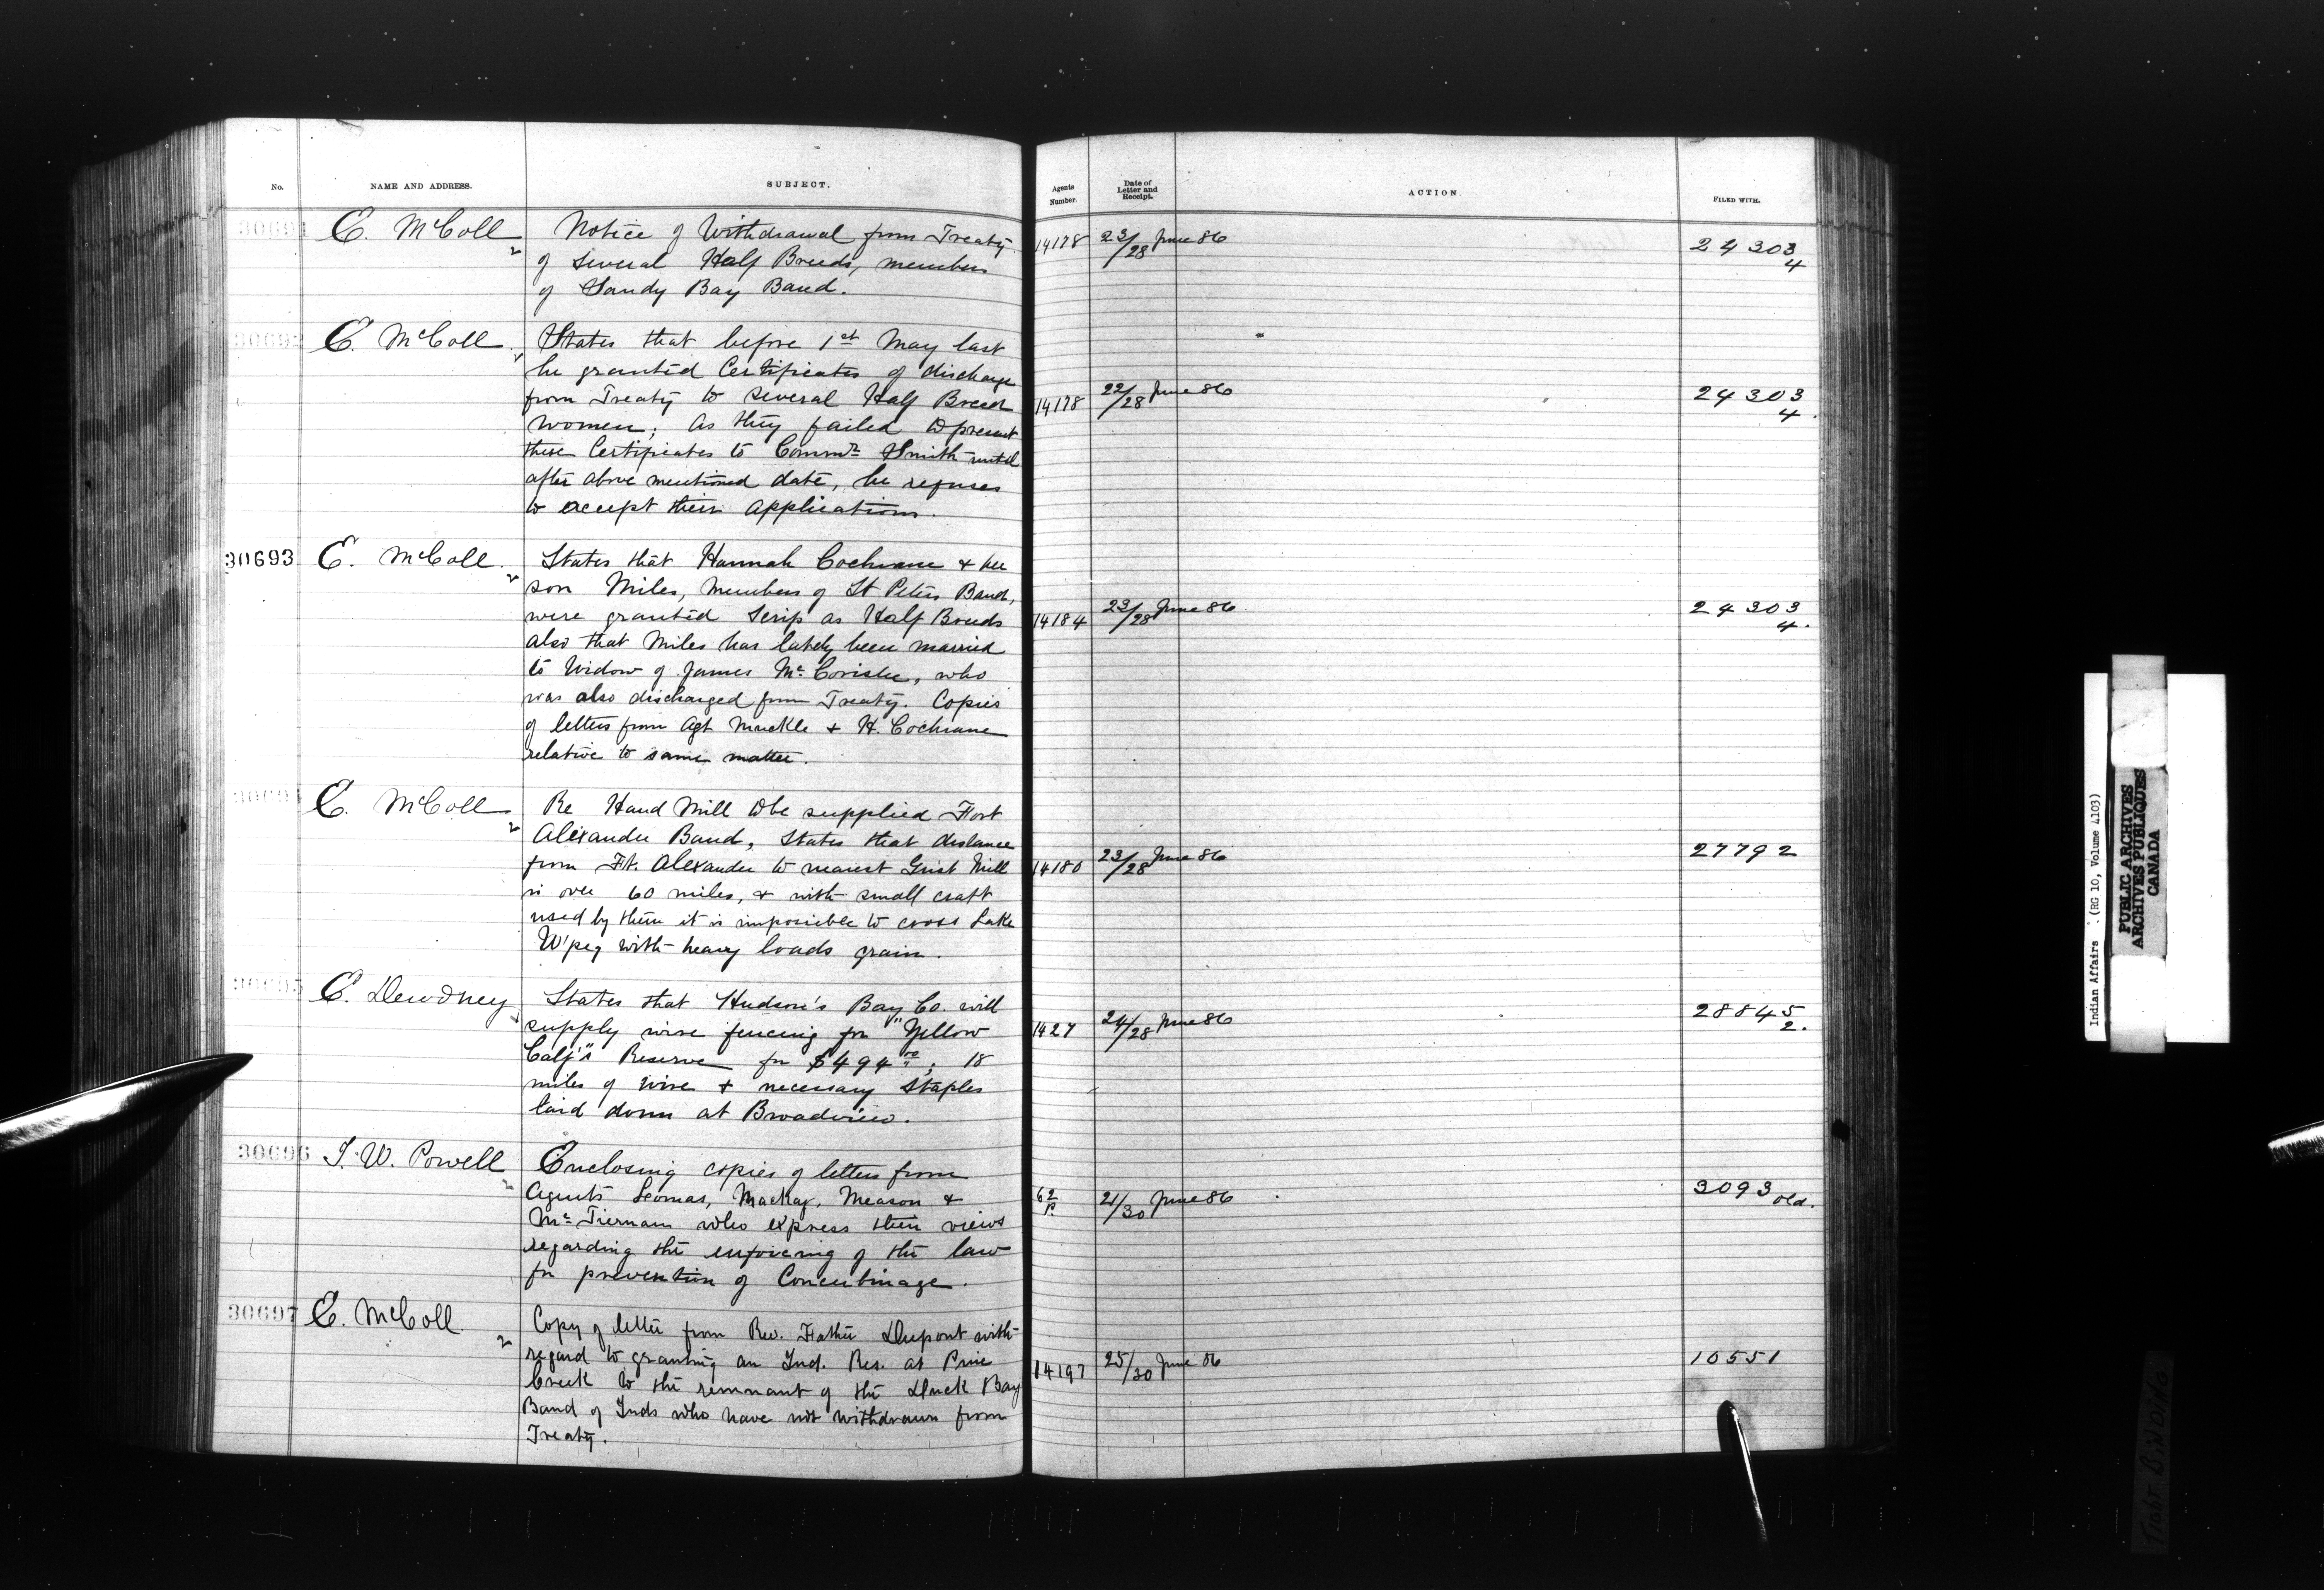 No.
NAME AND ADDRESS.
SUBJECT.
Agents Number.
Date of Letter and Receipt.
ACTION.
FILED WITH.
30691
E. McColl
2
Notice of Withdrawal from Treaty
of several Half Breeds, members
of Sandy Bay Band.
14178
23/28 June 86
24303
4
30692
E. McColl
States that before 1st May last
he granted Certificates of discharge
from Treaty to several Half Breed
Women; As they failed to present
these Certificates to Commr. Smith until
after above mentioned date, he refuses
to accept their applications.
14178
22/28 June 86
24303
4.
30693
E. McColl.
2
States that Hannah Cochrane & her
son Miles, members of St Peters Band,
were granted Scrip as Half Breeds
also that Miles has lately been married
to Widow of James Mc Corister, who
was also discharged from Treaty. Copies
of letters from Agt Muckle & H. Cochrane
relative to same matter.
14184
23/28 June 86
24303
4.
30694
E. McColl
2
Re Hand Mill to be supplied Fort
Alexander Band, States that distance
from Ft. Alexander to nearest Grist Mill
is over 60 miles, & with small craft
used by them it is impossible to cross Lake
W'peg with heavy loads grain.
14180
23/28 June 86
27792
30695
E. Dewdney
States that Hudson's Bay Co. will
supply wire fencing for "Yellow
Calf's" Reserve for $494.00; 18
miles of wire & necessary staples
laid down at Broadview.
1427
24/28 June 86
28845
2.
30696
I. W. Powell
2
Enclosing copies of letters from
Agents Lomas, Mackay, Meason &
Mc Tiernan who express their views
regarding the enforcing of the law
for prevention of Concubinage.
62
P.
21/30 June 86
3093 old.
30697
E. McColl.
2
Copy of letter from Rev. Father Dupont with
regard to granting an Ind. Res. at Pine
Creek to the remnant of the Duck Bay
Band of Inds who have not withdrawn from
Treaty.
14197
25/30 June 86
10551
Indian Affairs . (RG 10, Volume 4103)
PUBLIC ARCHIVES
ARCHIVES PUBLIQUES
CANADA
Tight BiNDiNG